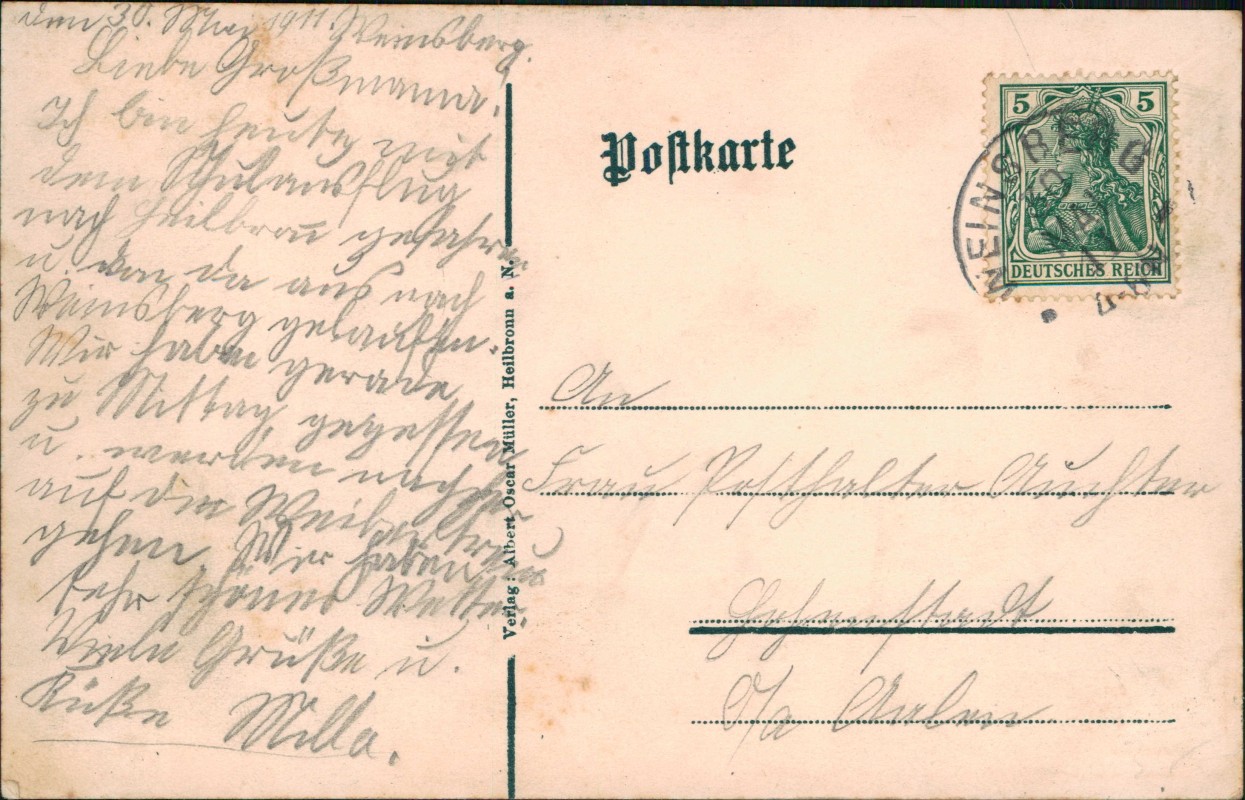 den 30. Mai 1911. Weinsberg.
Liebe Großmama.
Ich bin heute mit
dem Schulausflug
nach Heilbron gefahren
u. von da aus nach
Weinsberg gelaufen.
Wir haben gerade
zu Mittag gegessen
u. werden nachher
auf die Weibertreu
gehen. Wir haben
sehr schönes Wetter.
Viele Grüße u.
Küße Milla.
Verlag: Albert Oscar Müller, Heilbronn a. N.
Postkarte
5 5
DEUTSCHES REICH
WEINSBERG
30 MAI
An
Frau Posthalter Auchter
Hohenstadt
O/a Aalen